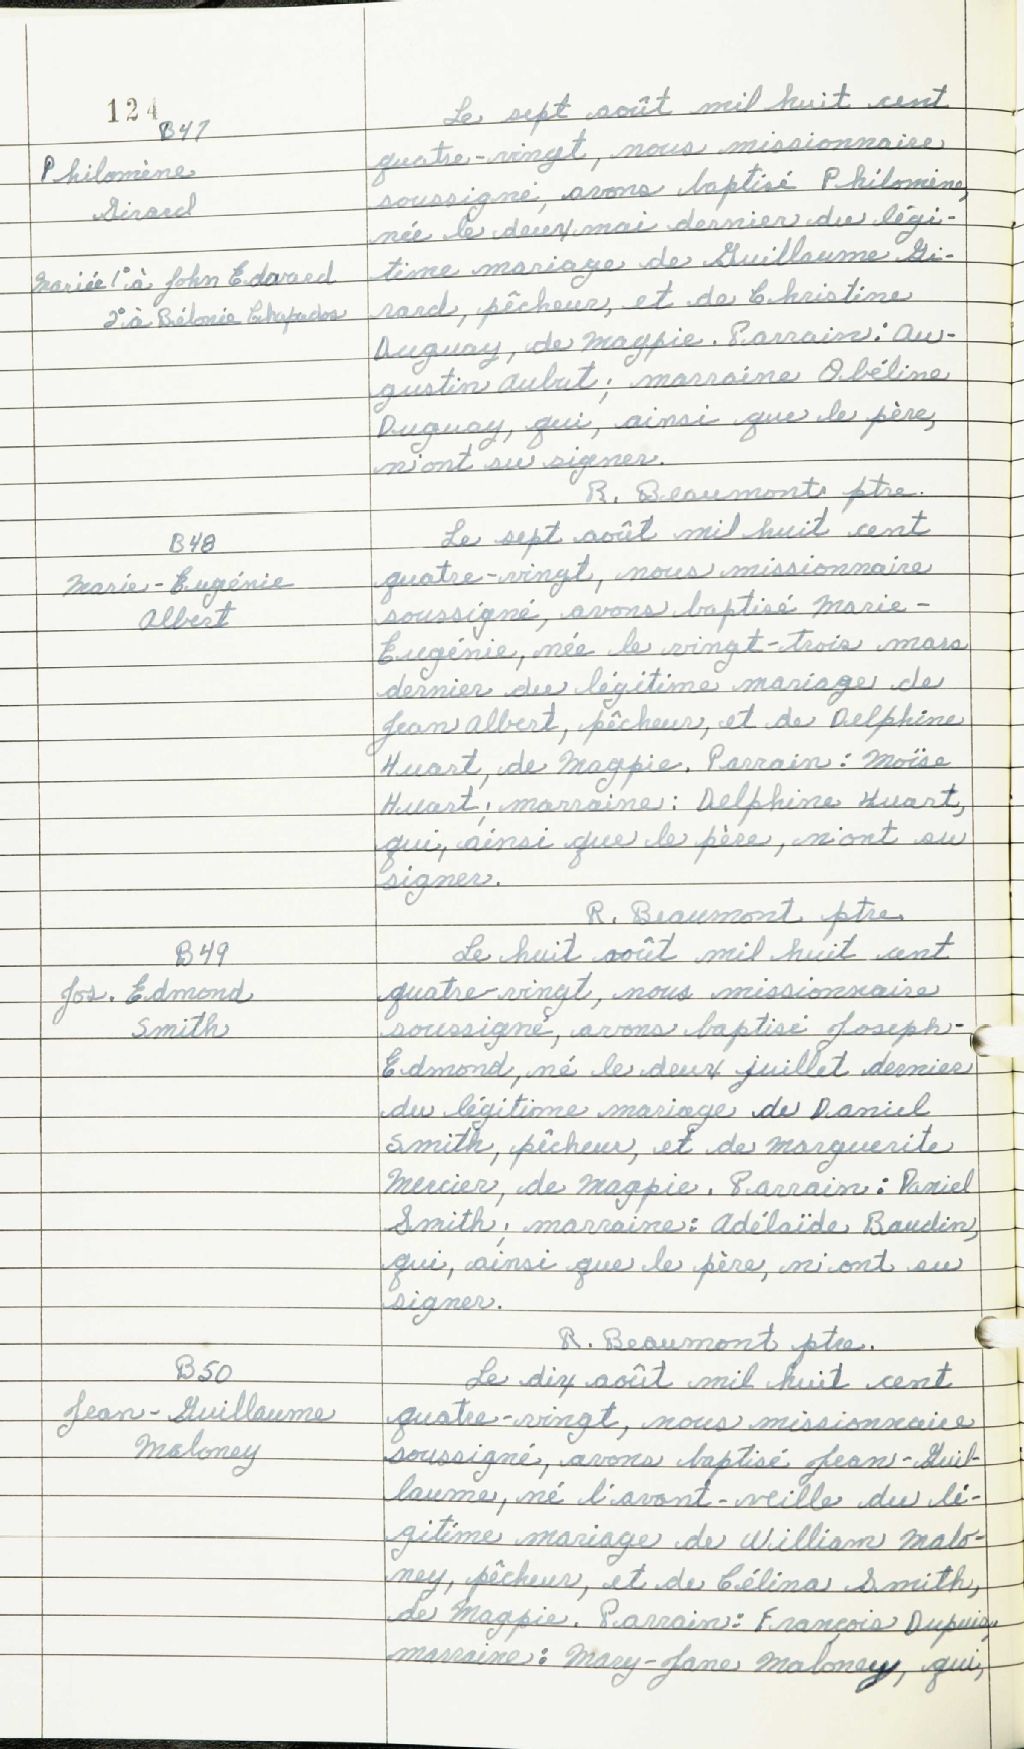 124
B47
Philomène
Girard
Mariée 1° à John Edward
2° à Bélonie Chapados
Le sept août mil huit cent
quatre-vingt, nous missionnaire
soussigné, avons baptisé Philomène,
née le deux mai dernier du légi-
time mariage de Guillaume Gi-
rard, pêcheur, et de Christine
Duguay, de Magpie. Parrain: Au-
gustin Aubut; marraine Obéline
Duguay, qui, ainsi que le père,
n'ont su signer.
R. Beaumont ptre.
B48
Marie-Eugénie
Albert
Le sept août mil huit cent
quatre-vingt, nous missionnaire
soussigné, avons baptisé Marie-
Eugénie, née le vingt-trois mars
dernier du légitime mariage de
Jean Albert, pêcheur, et de Delphine
Huart, de Magpie. Parrain: Moïse
Huart; marraine: Delphine Huart,
qui, ainsi que le père, n'ont su
signer.
R. Beaumont ptre.
B49
Jos. Edmond
Smith
Le huit août mil huit cent
quatre-vingt, nous missionnaire
soussigné, avons baptisé Joseph-
Edmond, né le deux juillet dernier
du légitime mariage de Daniel
Smith, pêcheur, et de Marguerite
Mercier, de Magpie. Parrain: Daniel
Smith; marraine: Adélaïde Baudin,
qui, ainsi que le père, n'ont su
signer.
R. Beaumont ptre.
B50
Jean-Guillaume
Maloney
Le dix août mil huit cent
quatre-vingt, nous missionnaire
soussigné, avons baptisé Jean-Guil-
laume, né l'avant-veille du lé-
gitime mariage de William Malo-
ney, pêcheur, et de Célina Smith,
de Magpie. Parrain: François Dupuis,
marraine: Mary-Jane Maloney, qui,